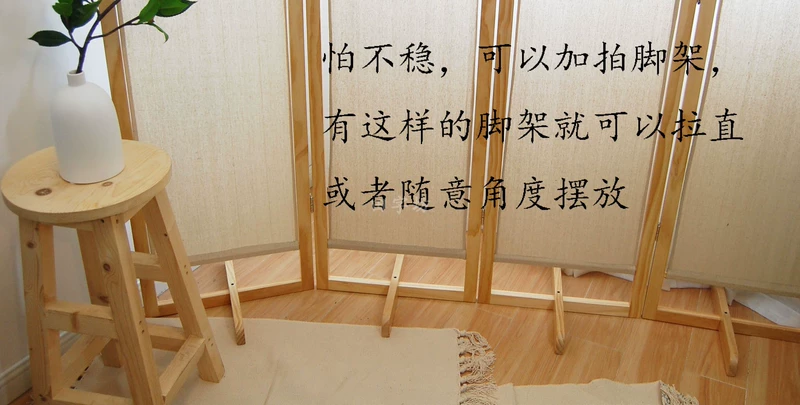 怕不稳，可以加拍脚架，
有这样的脚架就可以拉直
或者随意角度摆放